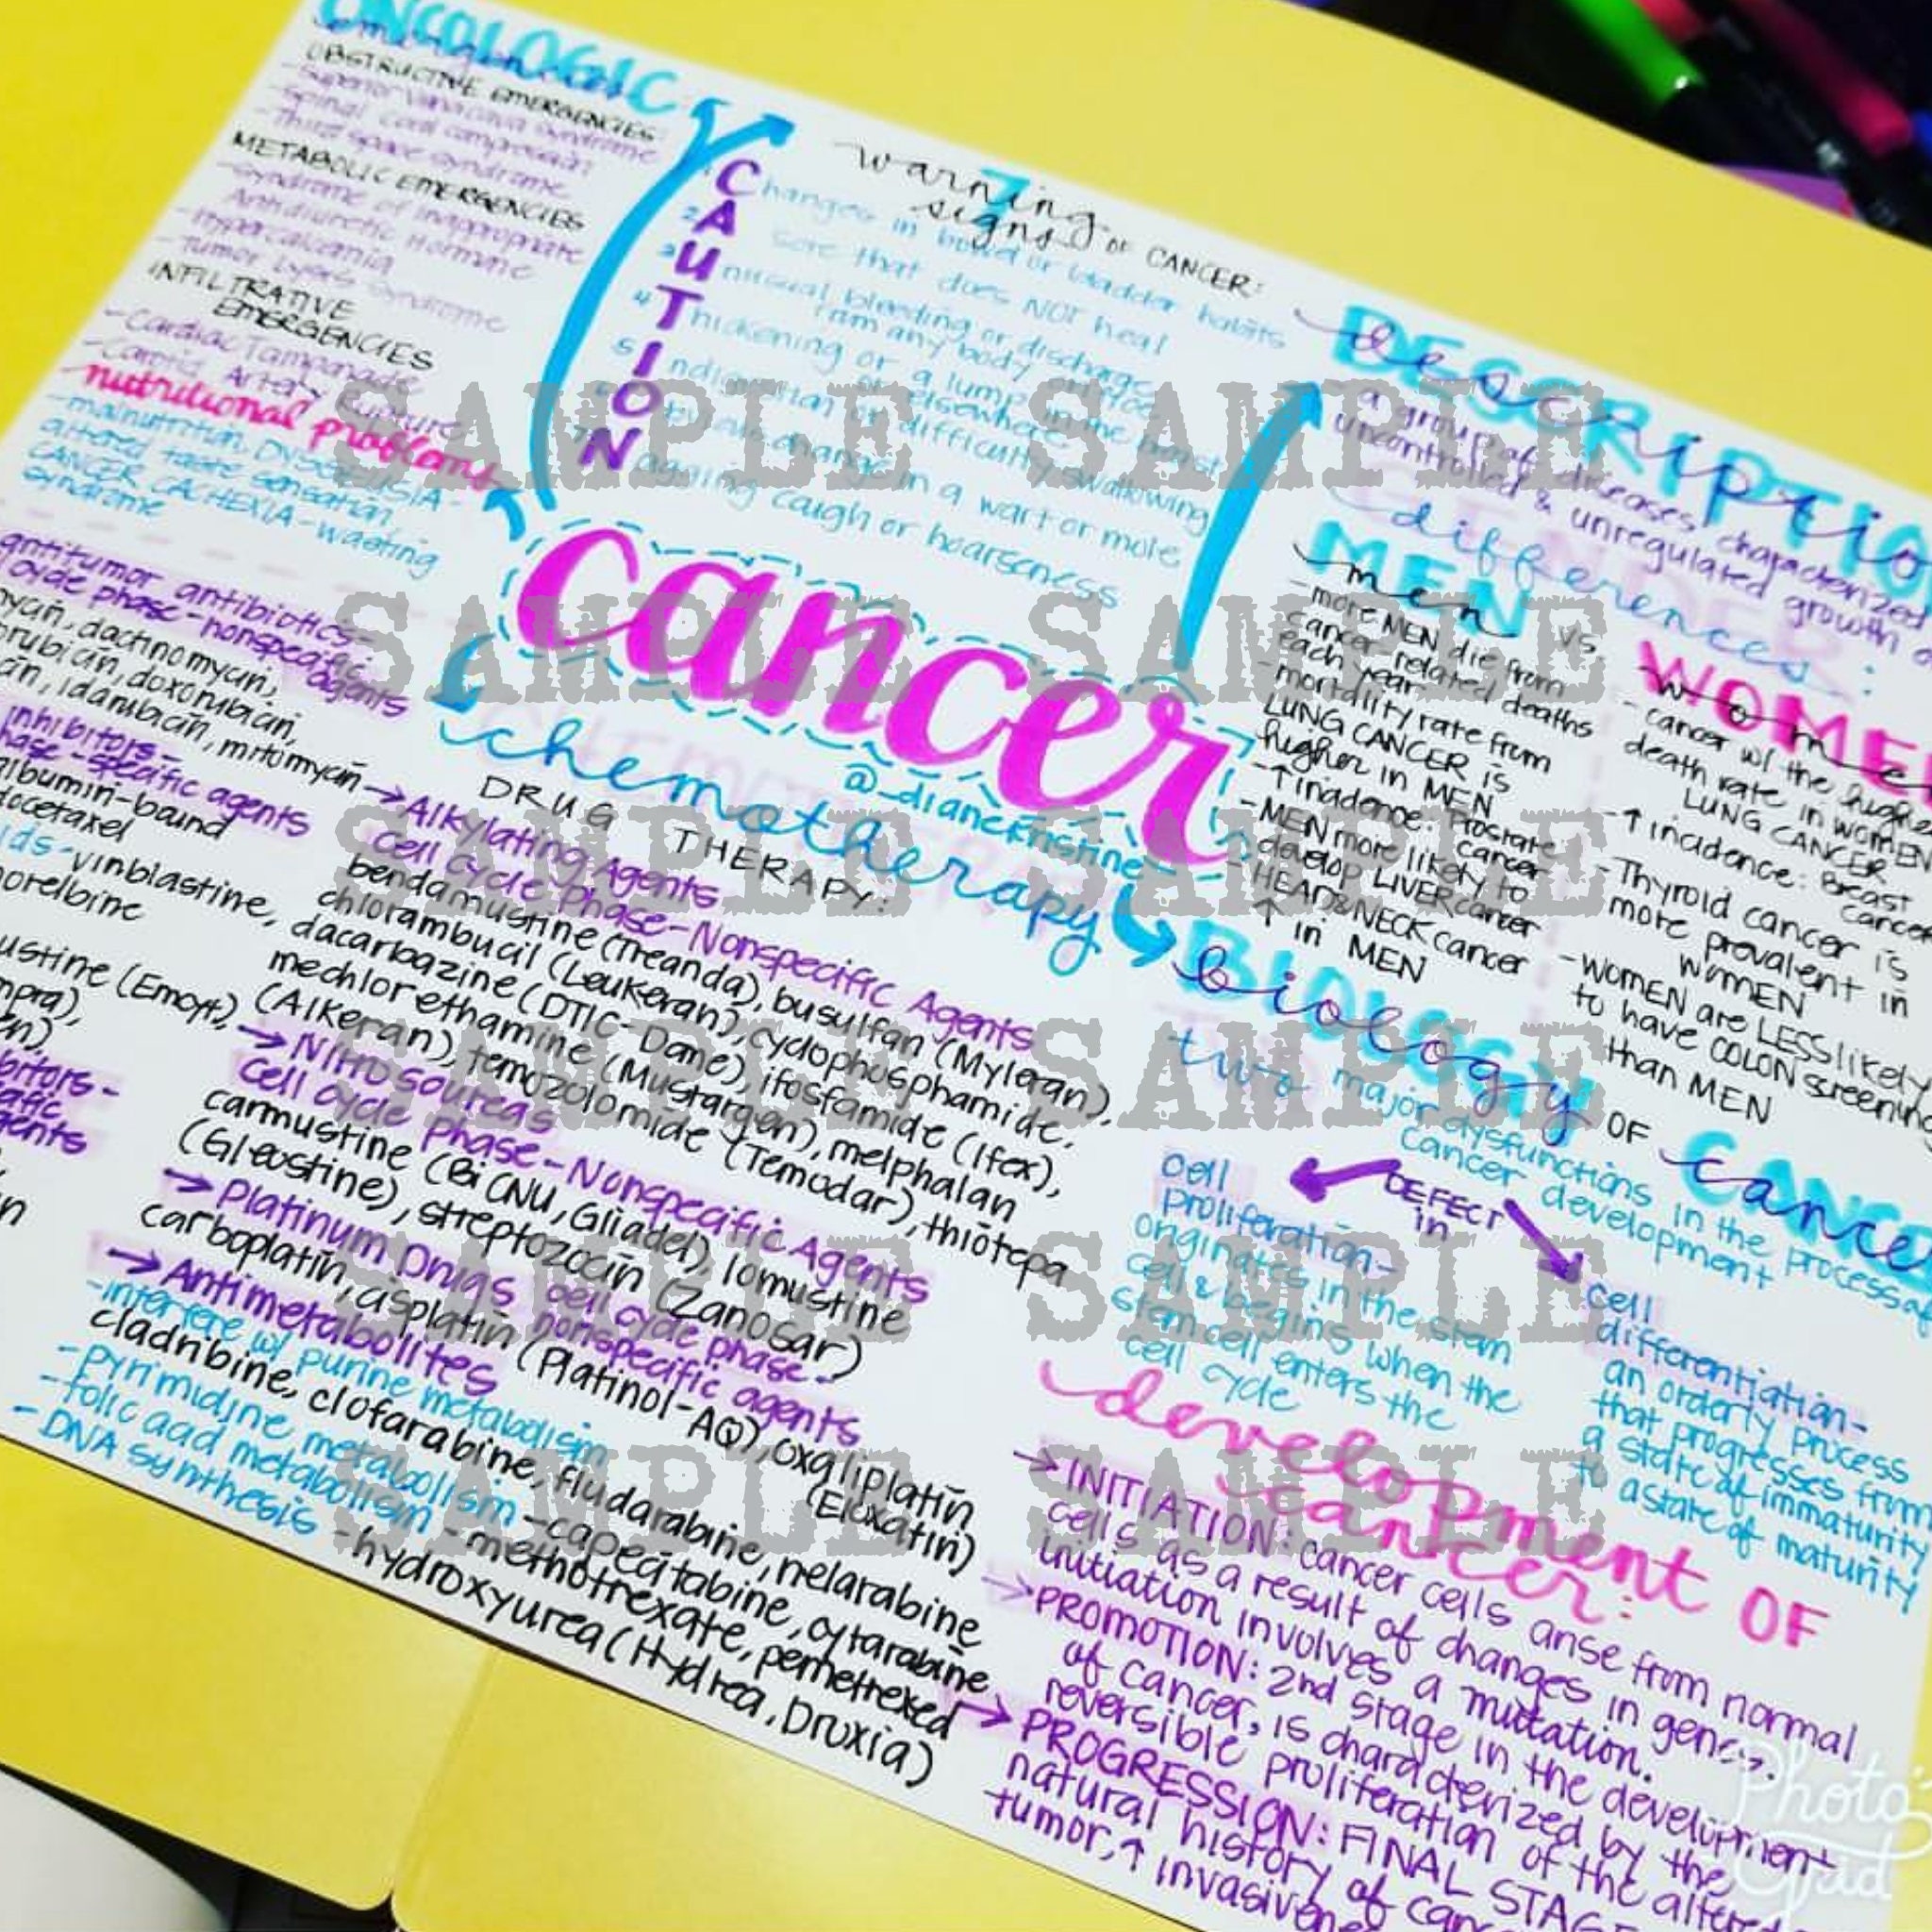 ONCOLOGIC
emergencies
OBSTRUCTIVE EMERGENCIES
- Superior Vena Cava syndrome
- Spinal cord compression
- Third space syndrome
METABOLIC EMERGENCIES
- Syndrome of Inappropriate
Antidiuretic Hormone
- Hypercalcemia
- Tumor Lysis Syndrome
INFILTRATIVE
EMERGENCIES
- Cardiac Tamponade
- Carotid Artery Rupture
nutritional problems
- malnutrition, DYSGEUSIA -
altered taste sensation,
CANCER CACHEXIA - wasting
syndrome
7 warning
signs OF CANCER:
CAUTION
1 Changes in bowel or bladder habits
2 A sore that does NOT heal
3 Unusual bleeding or discharge
from any body orifice
4 Thickening or a lump in the breast
or elsewhere
5 Indigestion or difficulty swallowing
change in a wart or mole
7 Nagging cough or hoarseness
cancer
@_dianekristine
DESCRIPTIO
description
- a group of diseases characterized
uncontrolled & unregulated growth o
GENDER
differences:
MEN
men
vs.
- more MEN die from
cancer-related deaths
each year
- mortality rate from
LUNG CANCER is
higher in MEN
- ↑ incidence: Prostate
cancer
- MEN more likely to
develop LIVER cancer
- HEAD & NECK cancer
↑ in MEN
WOMEN
women
- cancer w/ the highe
death rate in women
LUNG CANCER
- ↑ incidence: Breast
cancer
- Thyroid cancer is
more prevalent in
WOMEN
- WOMEN are LESS likely
to have COLON screening
than MEN
antitumor antibiotics -
cycle phase-nonspecific
agents
mycin, dactinomycin,
orubicin, doxorubicin,
cin, idarubicin, mitomycin
inhibitors -
hase-specific agents
albumin-bound
docetaxel
ids - vinblastine,
norelbine
ustine (Emcyt),
mpra),
en),
bitors -
ific
gents
CHEMOTHERAPY
chemotherapy
DRUG THERAPY:
→ Alkylating Agents
Cell Cycle Phase-Nonspecific Agents
bendamustine (Treanda), busulfan (Myleran),
chlorambucil (Leukeran), cyclophosphamide,
dacarbazine (DTIC-Dome), ifosfamide (Ifex),
mechlorethamine (Mustargen), melphalan
(Alkeran), temozolomide (Temodar), thiotepa
→ Nitrosoureas
Cell Cycle Phase-Nonspecific Agents
carmustine (BiCNU, Gliadel), lomustine
(Gleostine), streptozocin (Zanosar)
→ Platinum Drugs cell cycle phase-
nonspecific agents
carboplatin, cisplatin (Platinol-AQ), oxaliplatin
(Eloxatin)
→ Antimetabolites
- interfere w/ purine metabolism
cladribine, clofarabine, fludarabine, nelarabine
- pyrimidine metabolism - capecitabine, cytarabine
- folic acid metabolism - methotrexate, pemetrexed
- DNA synthesis - hydroxyurea (Hydrea, Droxia)
BIOLOGY
biology OF CANCE
cance
two major dysfunctions in the process of
cancer development
DEFECT
in
cell
proliferation -
originates in the stem
cell & begins when the
stem cell enters the
cell cycle
cell
differentiation -
an orderly process
that progresses from
a state of immaturity
to a state of maturity
development OF
cancer:
→ INITIATION: cancer cells arise from normal
cells as a result of changes in genes.
initiation involves a mutation.
→ PROMOTION: 2nd stage in the development
of cancer, is characterized by the
reversible proliferation of the altered
→ PROGRESSION: FINAL STAGE
natural history of canc
tumor, ↑ invasivene
SAMPLE SAMPLE
SAMPLE SAMPLE
SAMPLE SAMPLE
SAMPLE SAMPLE
SAMPLE SAMPLE
SAMPLE SAMPLE
Photo
Grid